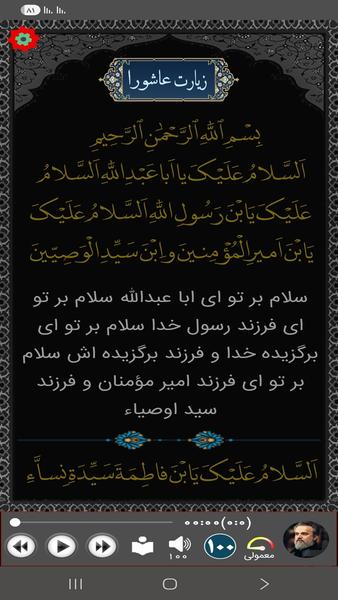 ۸۱
زیارت عاشورا
بِسْمِ اللهِ الرَّحْمٰنِ الرَّحِیْمِ
اَلسَّلامُ عَلَیْکَ یا اَبا عَبْدِ اللهِ اَلسَّلامُ
عَلَیْکَ یَابْنَ رَسُولِ اللهِ اَلسَّلامُ عَلَیْکَ
یَابْنَ اَمیرِ الْمُؤْمِنینَ وابْنَ سَیِّدِ الْوَصِیّینَ
سلام بر تو ای ابا عبدالله سلام بر تو
ای فرزند رسول خدا سلام بر تو ای
برگزیده خدا و فرزند برگزیده اش سلام
بر تو ای فرزند امیر مؤمنان و فرزند
سید اوصیاء
اَلسَّلامُ عَلَیْکَ یَابْنَ فاطِمَةَ سَیِّدَةِ نِساَّءِ
۰۰:۰۰(۰:۰)
۱۰۰
۱۰۰
معمولی